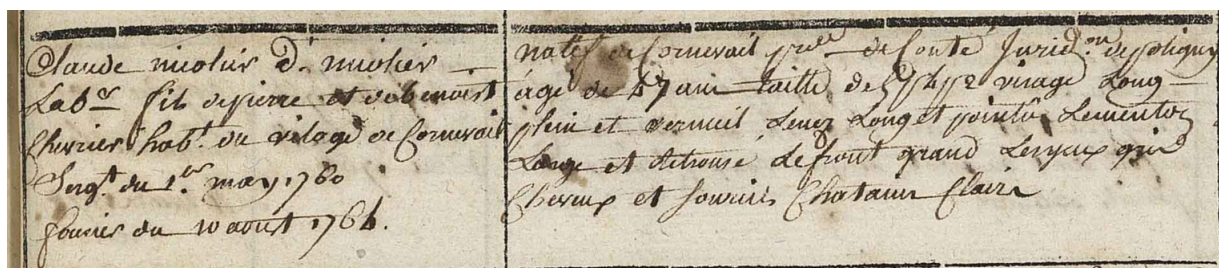 Claude nicolier d. nicolier
Labr. fils de pierre et de benoist
Chevrier habt. du vilage de Cornevait
Sergt. du 1er. may 1760
fourier du 10 aoust 1764.
natif de Cornevait de Conté Jurid.on de poligny
agé de 47 ans taille de 5 p 4 p 2 visage Long
plein et vermeil Lenez Long et pointû Lementon
Large et Lefront grand Lesyeux gris
Cheveux et Sourcis Chatains Clairs